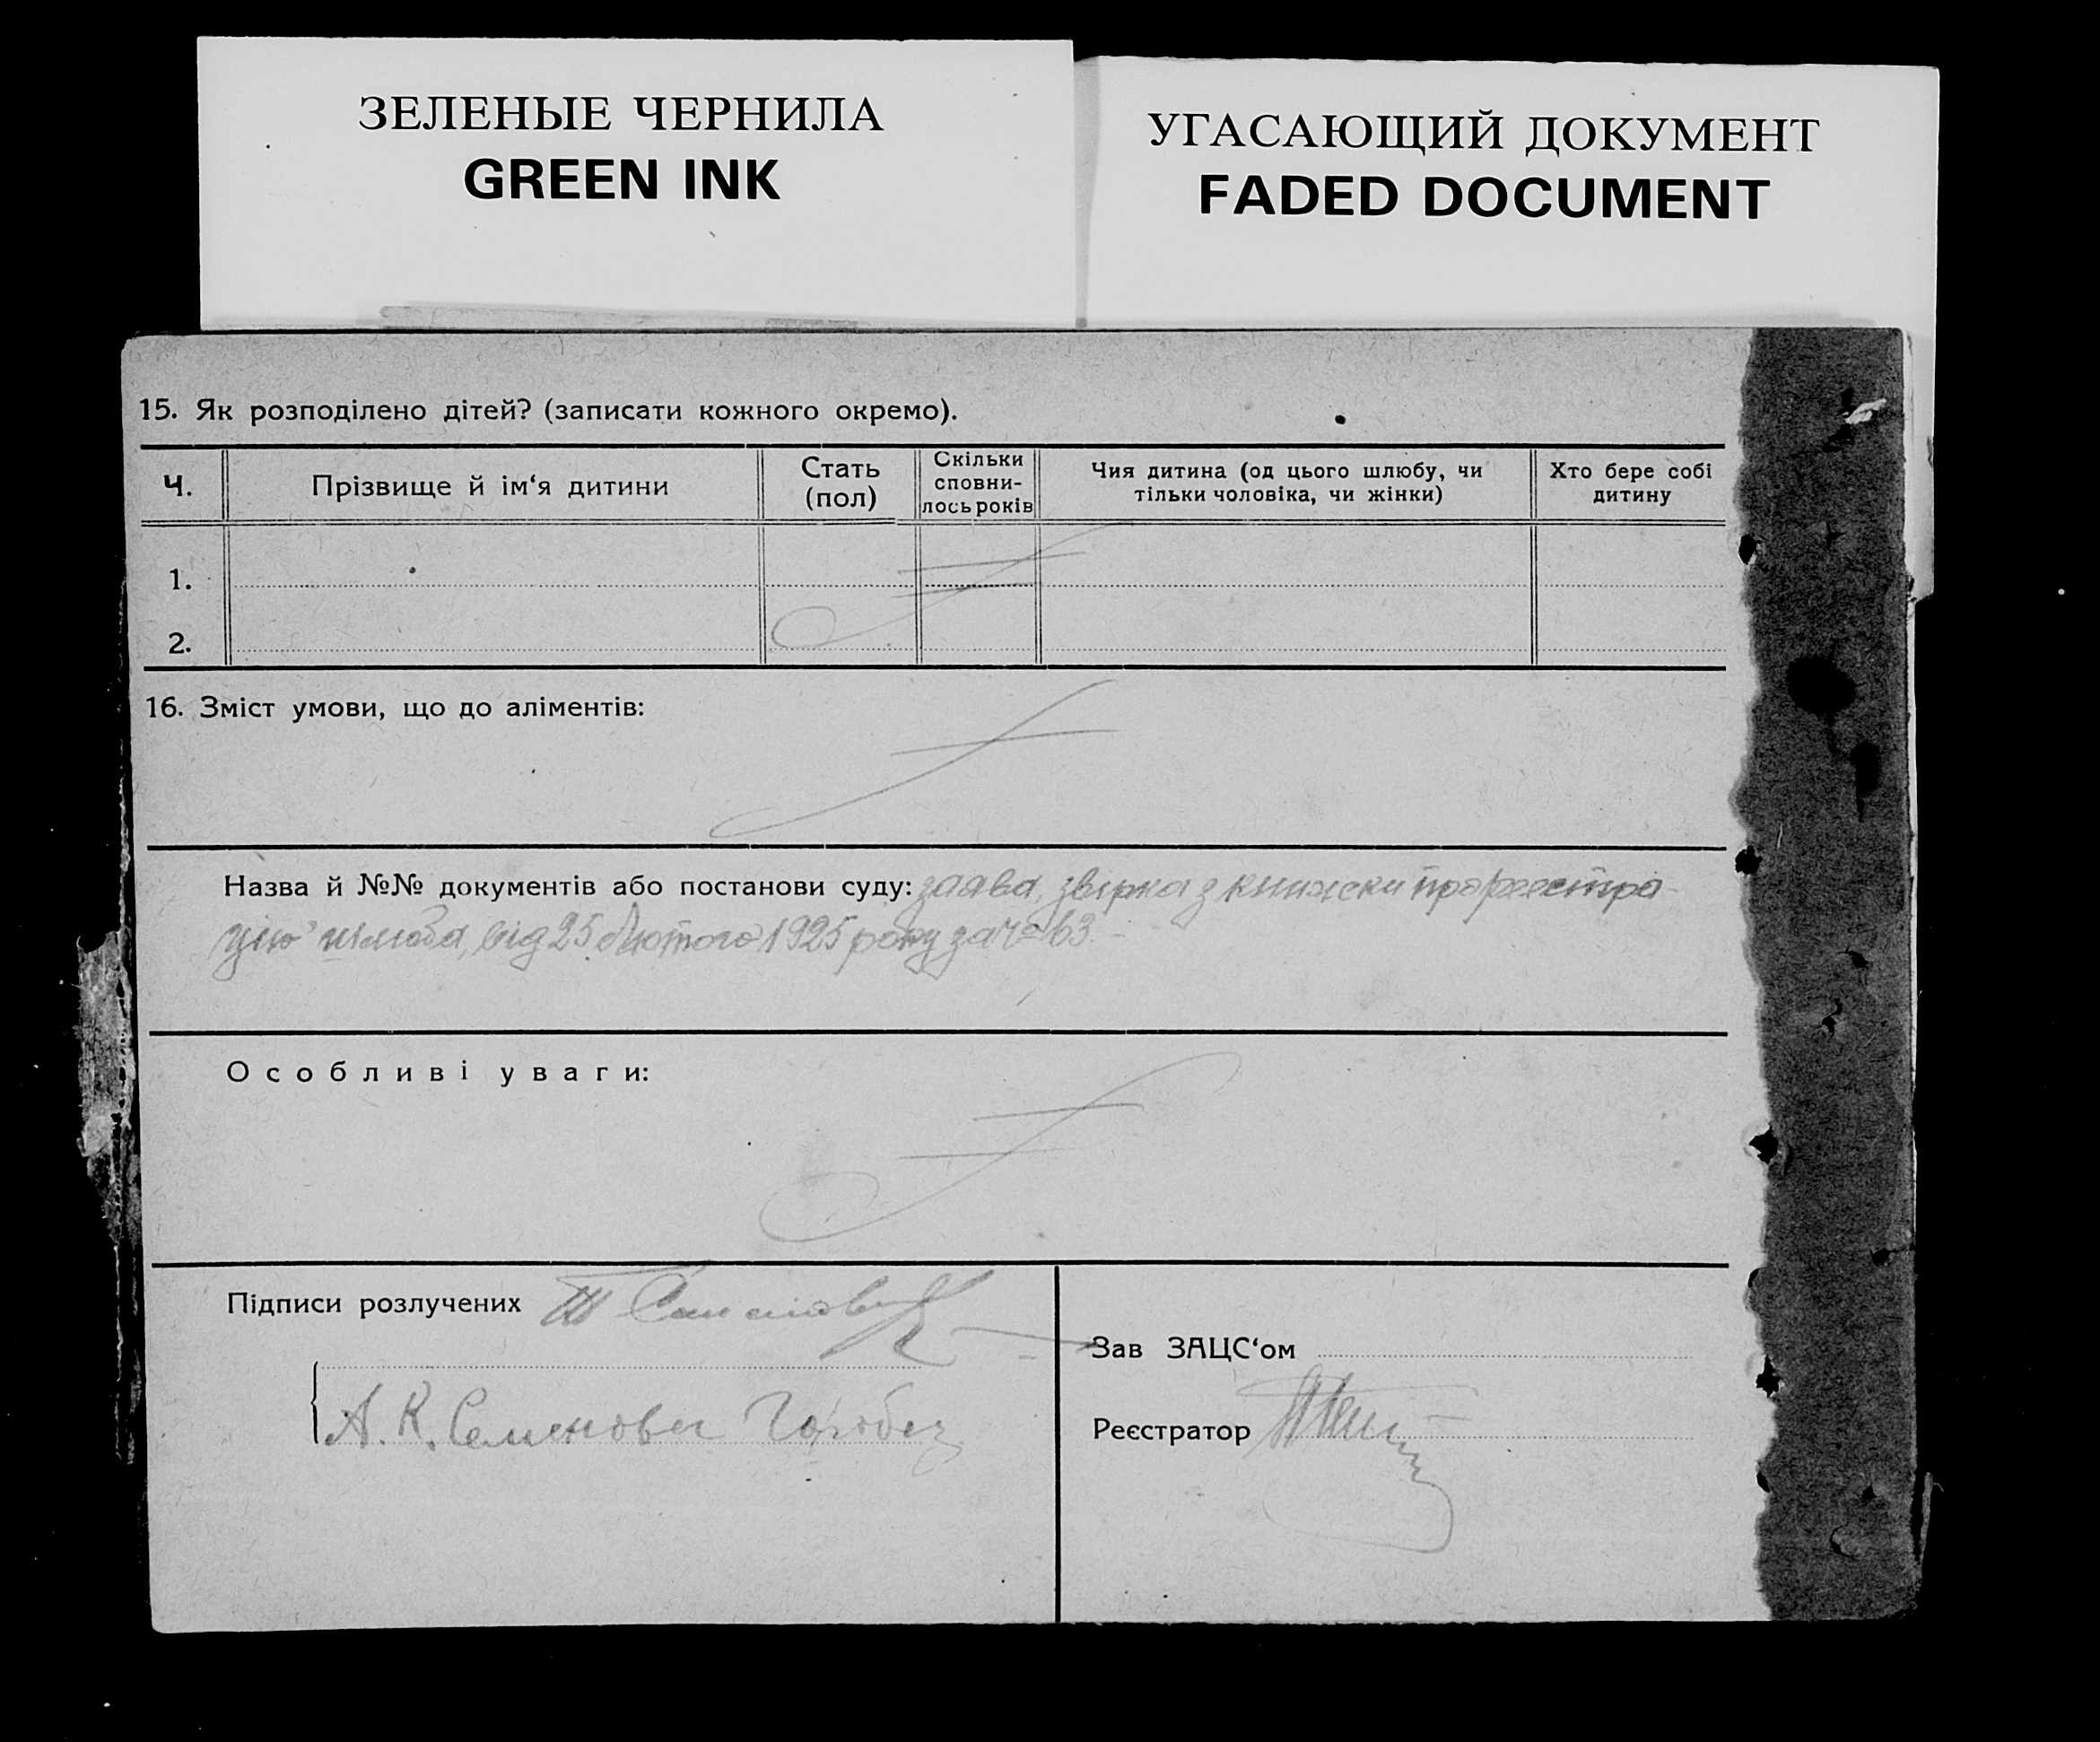 ЗЕЛЕНЫЕ ЧЕРНИЛА
GREEN INK
УГАСАЮЩИЙ ДОКУМЕНТ
FADED DOCUMENT
15. Як розподілено дітей? (записати кожного окремо).
Ч.
Прізвище й ім‘я дитини
Стать
(пол)
Скільки
сповни-
лось років
Чия дитина (од цього шлюбу, чи
тільки чоловіка, чи жінки)
Хто бере собі
дитину
1.
2.
16. Зміст умови, що до аліментів:
Назва й №№ документів або постанови суду: заява, звірка з книжски про реестра-
цію шлюба, від 25 Лютого 1925 року за Ч° 63.
Особливі уваги:
Підписи розлучених
А. К. Семенова
Зав ЗАЦС‘ом
Реєстратор